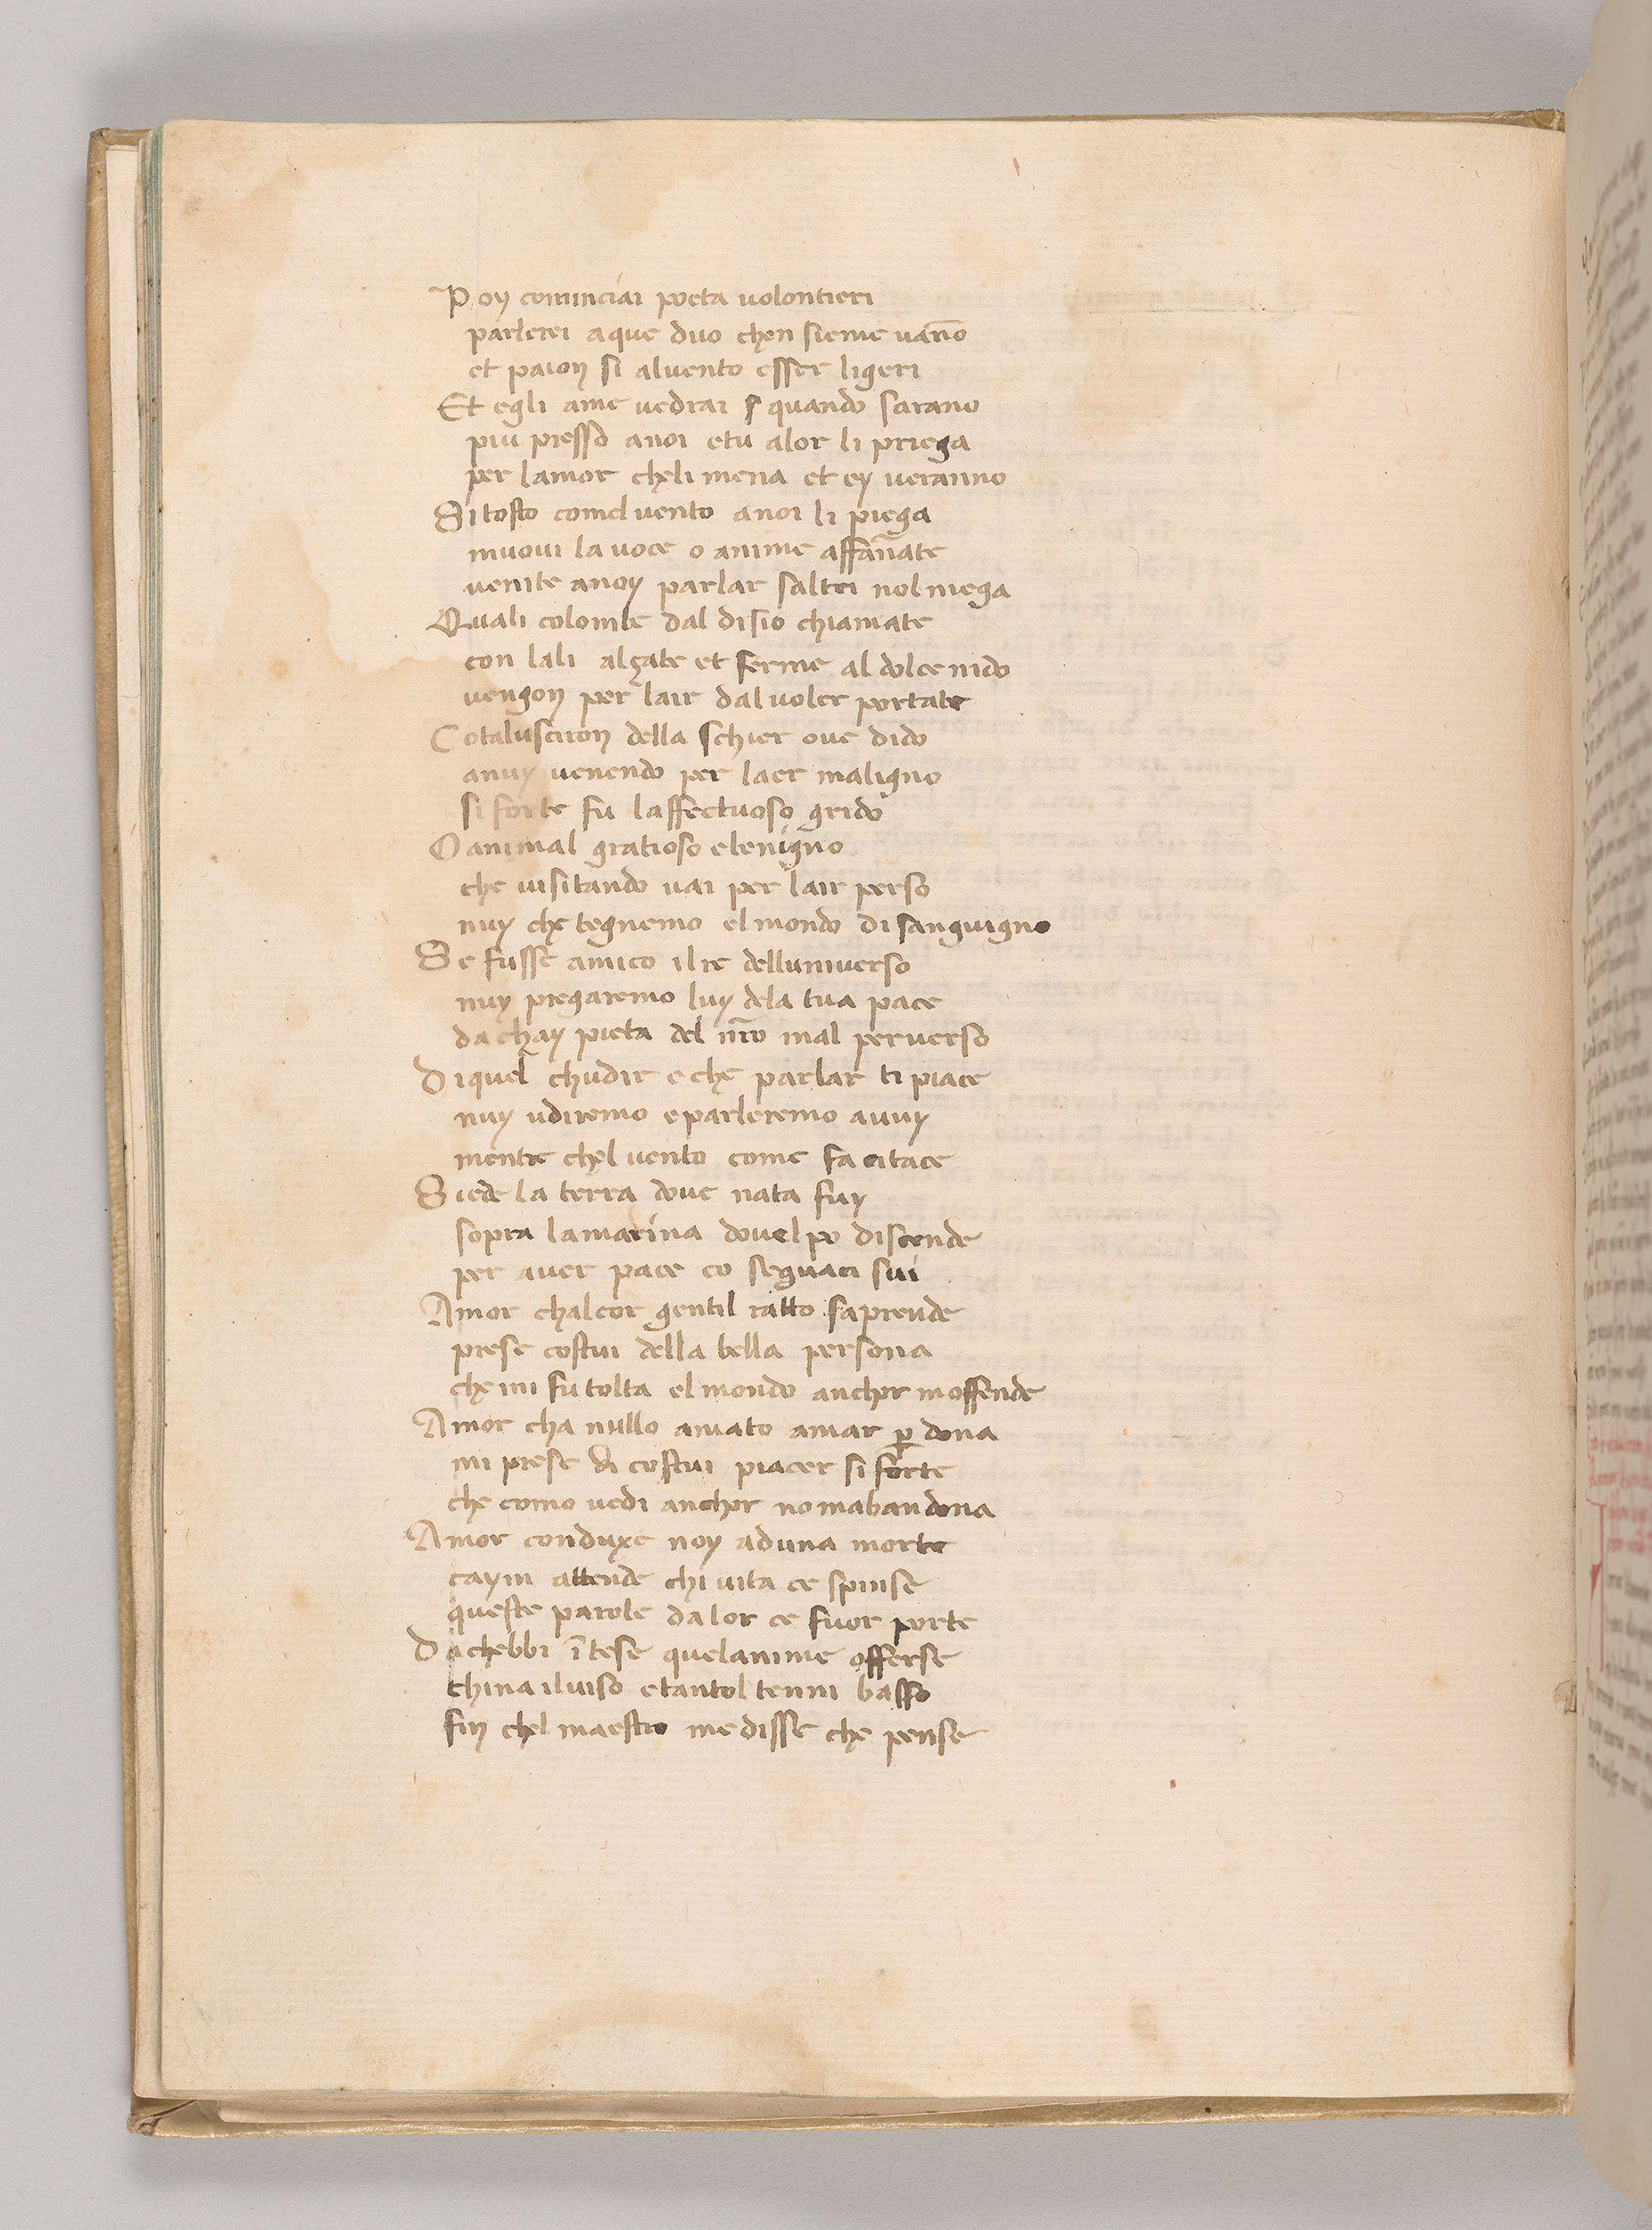 Poy cominciai poeta uolontieri
parlerei aque duo chen sieme uan̄o
et paion si aluento esser ligeri
Et egli ame uedrai quando sarano
piu presso anoi etu alor li priega
per lamor cheli mena et ey ueranno
Si tosto comel uento anoi li piega
muoui la uoce o anime affan̄ate
uenite anoy parlar saltri nol niega
Quali colombe dal disio chiamate
con lali alçate et ferme al dolce nido
uengon per lair dal uoler portate
Cotal usciron della schier oue dido
anuy uenendo per laer maligno
si forte fu laffectuoso grido
O animal gratioso e benigno
che uisitando uai per lair perso
nuy che tegnemo el mondo di sanguigno
Se fusse amico il re delluniuerso
nuy pregaremo luy dela tua pace
da chay pieta del nr̄o mal peruerso
Di quel chudir e che parlar ti piace
nuy udiremo e parleremo auuy
mentre chel uento come fa citace
Siede la terra doue nata fuy
sopra la marina douel po discende
per auer pace co seguaci sui
Amor chalcor gentil ratto saprende
prese costui della bella persona
che mi fu tolta el mondo anchor moffende
Amor cha nullo amato amar ꝑdona
mi prese di costui piacer si forte
che como uedi anchor no mabandona
Amor conduxe noy aduna morte
cayin attende chi uita ce spinse
queste parole da lor ce fuor porte
Da chebbi ītese quelanime offerse
china iluiso etantol tenni basso
fin chel maestro me disse che pense